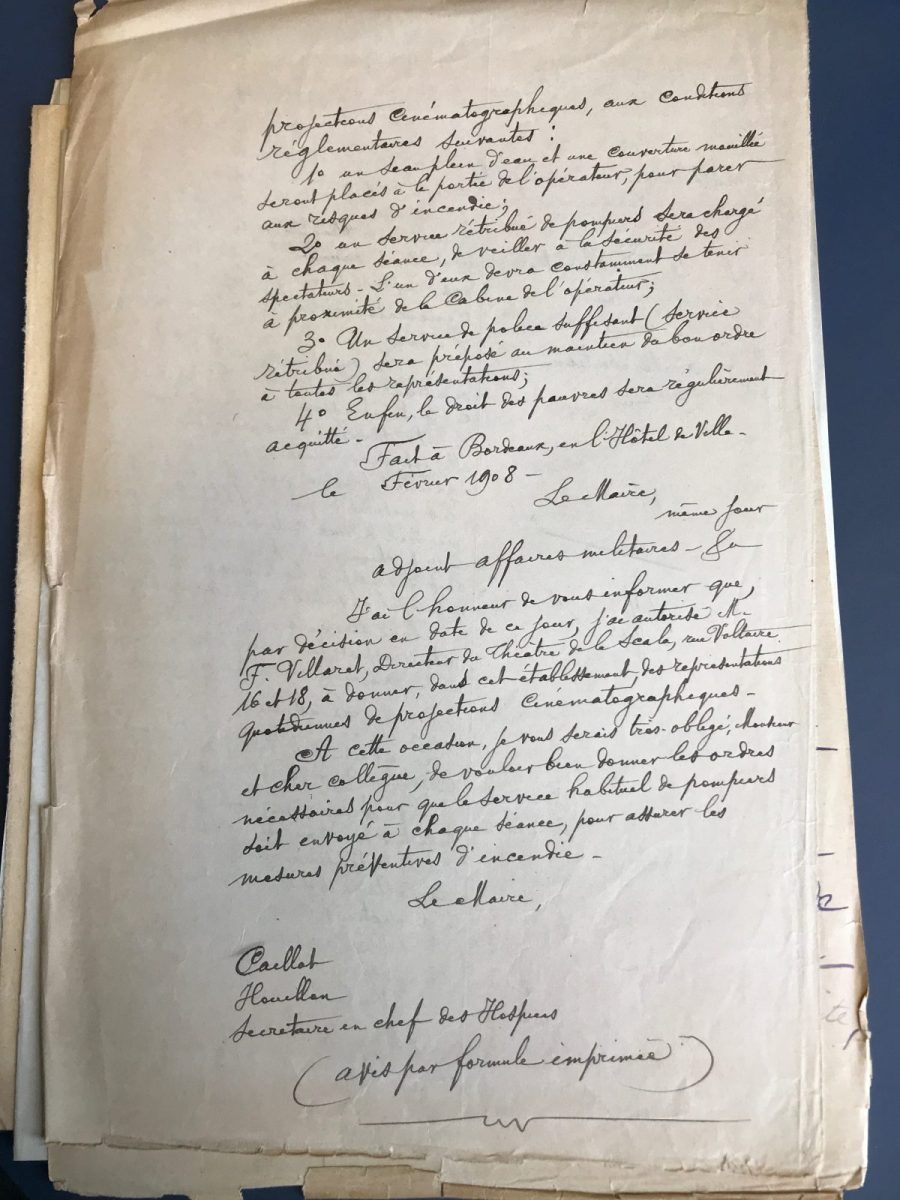 projections cinématographiques, aux conditions
réglementaires suivantes :
1º un seau plein d'eau et une couverture mouillée
seront placés à la portée de l'opérateur, pour parer
aux risques d'incendie;
2º un service rétribué de pompiers sera chargé
à chaque séance, de veiller à la sécurité des
spectateurs - L'un d'eux devra constamment se tenir
à proximité de la Cabine de l'opérateur;
3º Un service de police suffisant (service
rétribué) sera préposé au maintien du bon ordre
à toutes les représentations;
4º Enfin, le droit des pauvres sera régulièrement
acquitté -
Fait à Bordeaux, en l'Hôtel de Ville -
le Février 1908 -
Le Maire,
même jour
adjoint affaires militaires -
J'ai l'honneur de vous informer que,
par décision en date de ce jour, j'ai autorisé M.
F. Villaret, Directeur du Théâtre de la Scala, rue Voltaire
16 et 18, à donner, dans cet établissement, des représentations
quotidiennes de projections cinématographiques -
A cette occasion, je vous serais très obligé, Monsieur
et cher collègue, de vouloir bien donner les ordres
nécessaires pour que le service habituel de pompiers
soit envoyé à chaque séance, pour assurer les
mesures préventives d'incendie -
Le Maire,
Caillot
Houillon
Secrétaire en chef des Hospices
(avis par formule imprimée)